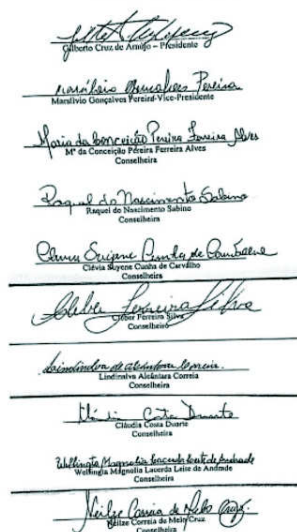 Gilberto Cruz de Araújo – Presidente
Marsilvio Gonçalves Pereira
Marsilvio Gonçalves Pereira-Vice-Presidente
Maria da Conceição Pereira Ferreira Alves
Mª da Conceição Pereira Ferreira Alves
Conselheira
Raquel do Nascimento Sabino
Raquel do Nascimento Sabino
Conselheira
Clévia Suyene Cunha de Carvalho
Clévia Suyene Cunha de Carvalho
Conselheira
Cleber Ferreira Silva
Cleber Ferreira Silva
Conselheiro
Lindinalva Alcântara Correia
Conselheira
Cláudia Costa Duarte
Cláudia Costa Duarte
Conselheira
Wellingta Magnolia Lacerda Leite de Andrade
Wellingta Magnolia Lacerda Leite de Andrade
Conselheira
Neilze Correia de Melo Cruz
Neilze Correia de Melo Cruz
Conselheira